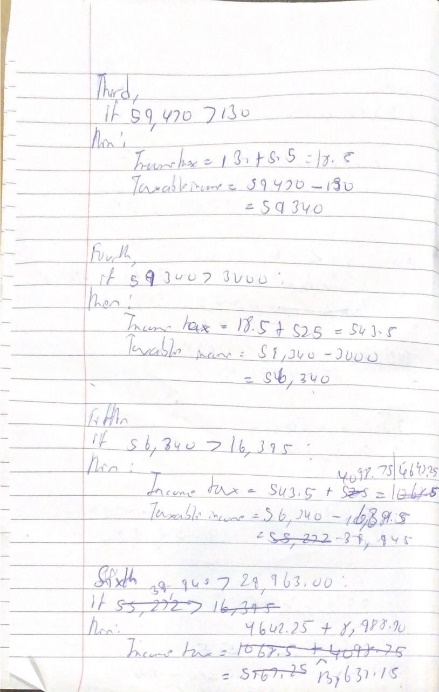 Third,
if 59,470 > 130
Then:
Income tax = 13 + 5.5 = 18.5
Taxable income = 59470 - 130
= 59340
Fourth,
if 59340 > 3000:
then:
Income tax = 18.5 + 525 = 543.5
Taxable income = 59,340 - 3000
= 56,340
Fifth
if 56,340 > 16,395:
Then:
4098.75 | 4642.25
Income tax = 543.5 + 525 = 1068.5
Taxable income = 56,340 - 16,395
= 55,272 39,945
Sixth 39,945 > 29,963.00:
if 55,272 > 16,395
Then: 4642.25 + 8,988.90
Income tax = 1068.5 + 4098.75
= 5167.25 13,631.15